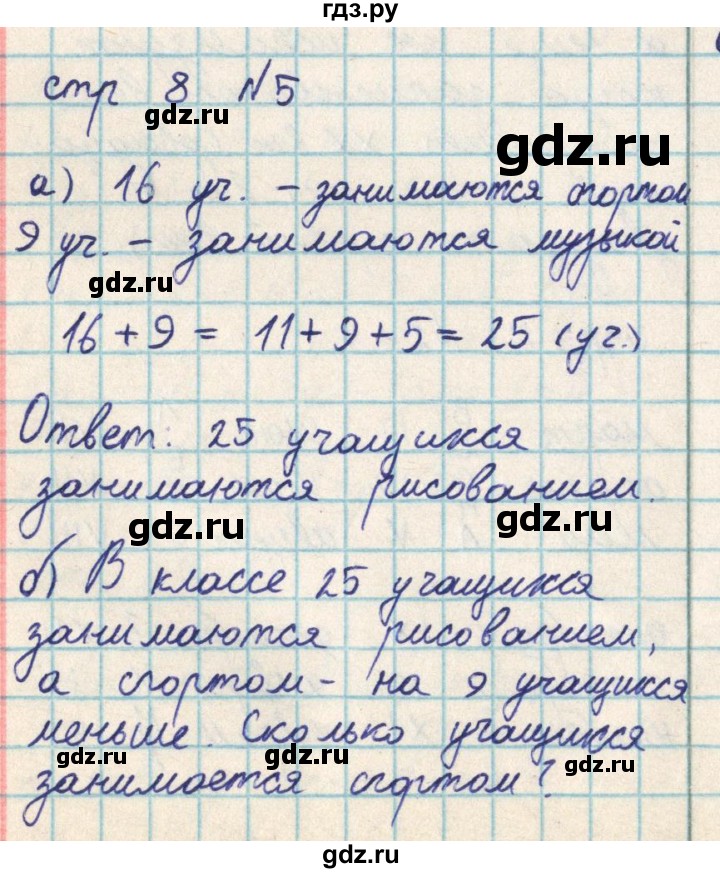 гдз.ру
стр 8 №5
gdz.ru
gdz.ru
а) 16 уч. - занимаются спортом
9 уч. - занимаются музыкой
gdz.ru
gdz.ru
16 + 9 = 11 + 9 + 5 = 25 (уч.)
Ответ: 25 учащихся
gdz.ru
gdz.ru
занимаются рисованием.
gdz.ru
gdz.ru
б) В классе 25 учащихся
занимаются рисованием,
а спортом - на 9 учащихся
меньше. Сколько учащихся
gdz.ru
gdz.ru
gdz.ru
занимается спортом?
gdz.ru